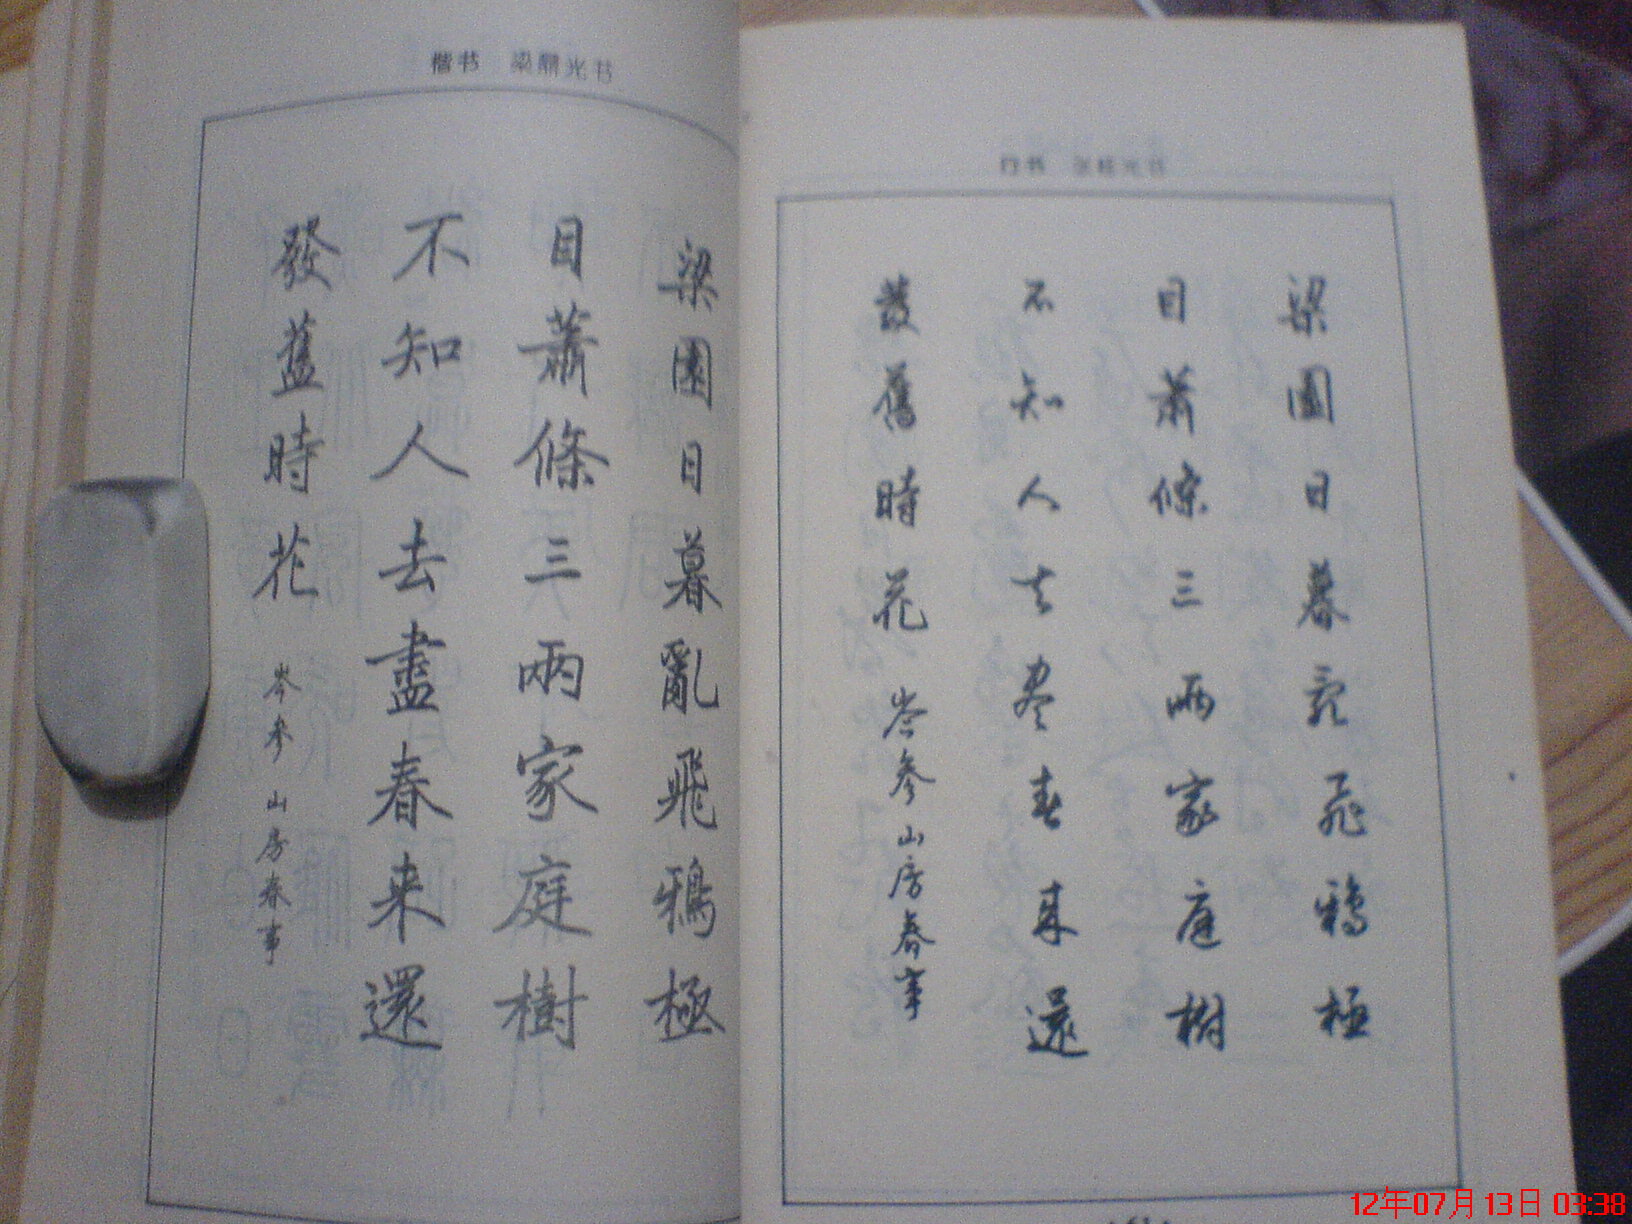 楷书 梁鼎光书
梁園日暮亂飛鴉極
目蕭條三兩家庭樹
不知人去盡春来還
發舊時花
岑參山房春事
行书 张桂光书
梁園日暮亂飛鴉極
目蕭條三兩家庭樹
不知人去尽春来還
發舊時花
岑參山房春事
12年07月13日 03:38